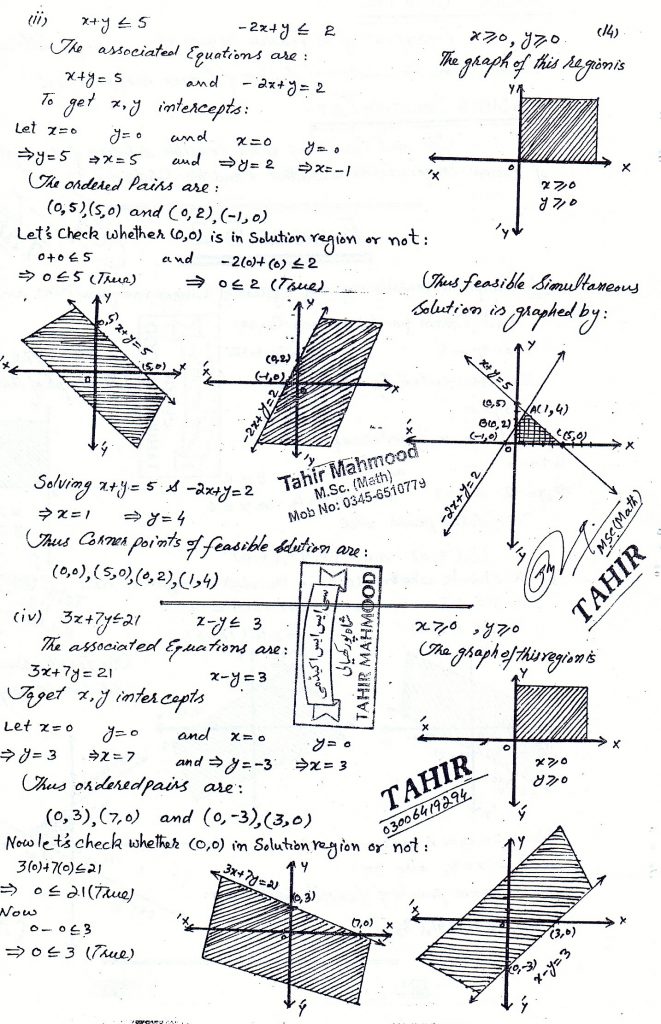 (ii) x+y ≤ 5 -2x+y ≤ 2 x⩾0, y⩾0 (14)
The associated Equations are :
x+y = 5 and -2x+y = 2
To get x, y intercepts:
Let x=0 y=0 and x=0 y=0
⇒y=5 ⇒x=5 and ⇒y=2 ⇒x=-1
The ordered Pairs are :
(0,5),(5,0) and (0,2),(-1,0)
Let's Check whether (0,0) is in Solution region or not :
0+0 ≤ 5 and -2(0)+(0) ≤ 2
⇒ 0 ≤ 5 (True) ⇒ 0 ≤ 2 (True)
The graph of this region is
Y
'X 0 X
x⩾0
y⩾0
'Y
Thus feasible Simultaneous
Solution is graphed by:
Y
0,5 x+y=5
(5,0)
0 X
'Y
Y
(0,2)
'X (-1,0) 0 X
-2x+y=2
'Y
Y
x+y=5
(0,5) A(1,4)
B(0,2)
'X (-1,0) C(5,0) X
-2x+y=2
'Y
Solving x+y=5 & -2x+y=2
⇒x=1 ⇒y=4
Thus Corner points of feasible Solution are :
(0,0),(5,0),(0,2),(1,4)
Tahir Mahmood
M.Sc. (Math)
Mob No: 0345-6510779
MSC(Math)
TAHIR
TAHIR MAHMOOD
(iv) 3x+7y≤21 x-y≤ 3 x⩾0 , y⩾0
The associated Equations are :
3x+7y=21 x-y=3
To get x, y intercepts
Let x=0 y=0 and x=0 y=0
⇒ y=3 ⇒x=7 and ⇒y=-3 ⇒x=3
Thus ordered pairs are :
(0,3),(7,0) and (0,-3),(3,0)
Now let's check whether (0,0) in Solution region or not :
3(0)+7(0)≤21
⇒ 0 ≤ 21(True)
Now
0-0≤3
⇒ 0 ≤ 3 (True)
The graph of this region is
'X 0 X
x⩾0
y⩾0
'Y
TAHIR
03006419294
Y
3x+7y=21
(0,3)
(7,0)
'X 0 X
'Y
Y
'X (3,0) X
(0,-3) x-y=3
'Y